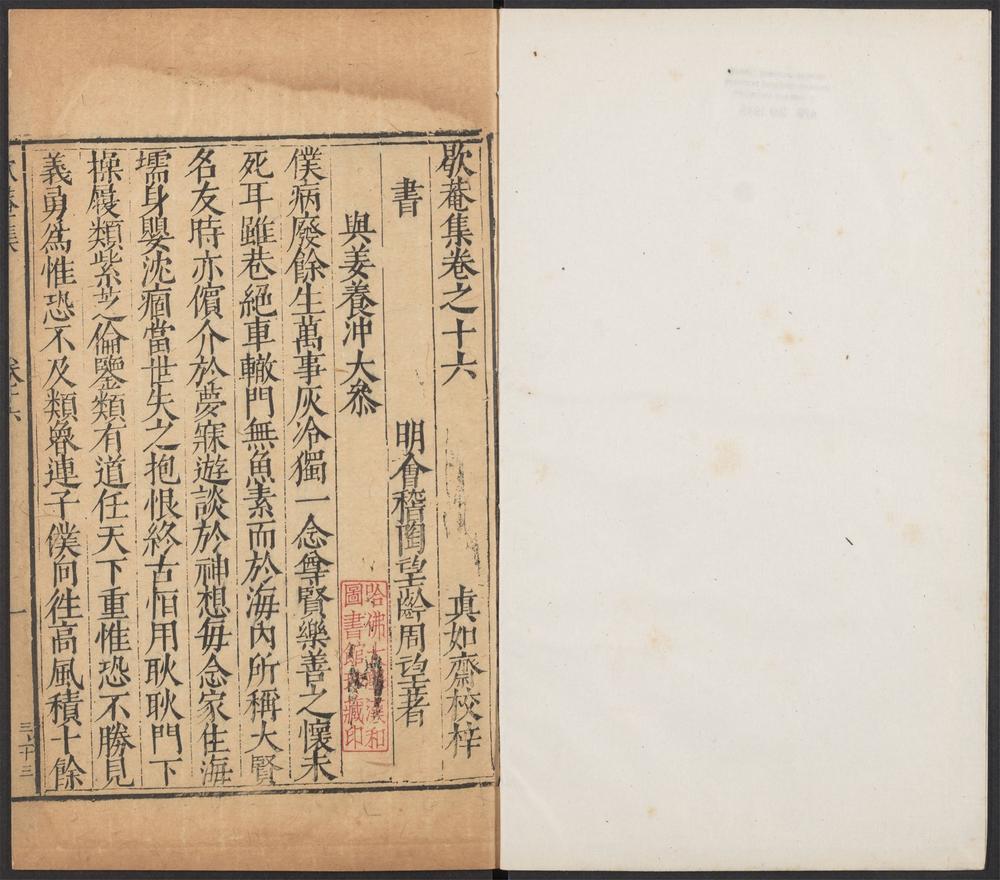 歇菴集卷之十六
真如齋校梓
書
明會稽陶望齡周望著
與姜養沖大叅
僕病廢餘生萬事灰冷獨一念尊賢樂善之懷未
死耳雖巷絕車轍門無魚素而於海內所稱大賢
名友時亦儐介於夢寐遊談於神想每念家住海
壖身嬰沈痼當世失之抱恨終古怕用耿耿門下
操履類紫芝倫鑒類有道任天下重惟恐不勝見
義勇為惟恐不及類魯連子僕向徃高風積十餘
一
三二十三
哈佛大學漢和
圖書館珍藏印